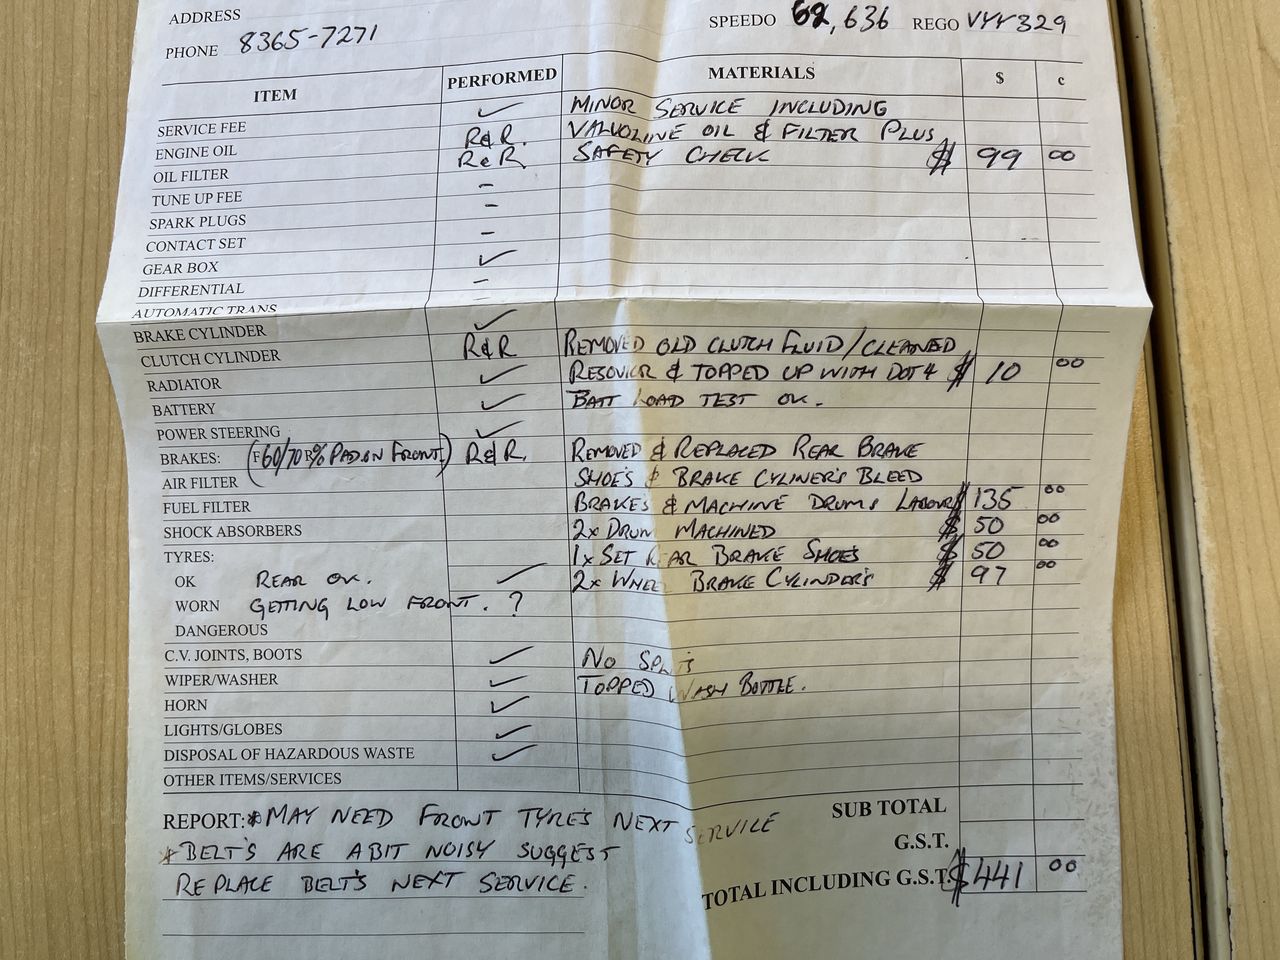 ADDRESS SPEEDO 62,636 REGO VYY 329
PHONE 8365-7271
ITEM PERFORMED MATERIALS $ c
SERVICE FEE ✓ MINOR SERVICE INCLUDING
ENGINE OIL R&R. VALVOLINE OIL & FILTER PLUS
OIL FILTER R&R SAFETY CHECK $ 99 00
TUNE UP FEE -
SPARK PLUGS -
CONTACT SET -
GEAR BOX ✓
DIFFERENTIAL -
AUTOMATIC TRANS -
BRAKE CYLINDER ✓
CLUTCH CYLINDER R&R REMOVED OLD CLUTCH FLUID/CLEANED
RADIATOR ✓ RESOVIOR & TOPPED UP WITH DOT4 $ 10 00
BATTERY ✓ BATT LOAD TEST OK.
POWER STEERING ✓
BRAKES: (F 60/70 R% PAD ON FRONT) R&R. REMOVED & REPLACED REAR BRAKE
AIR FILTER SHOE'S & BRAKE CYLINER'S BLEED
FUEL FILTER BRAKES & MACHINE DRUMS LABOUR $ 135 00
SHOCK ABSORBERS 2x DRUM MACHINED $ 50 00
TYRES: 1x SET REAR BRAKE SHOE'S $ 50 00
OK REAR OK. ✓ 2x WHEEL BRAKE CYLINDER'S $ 97 00
WORN GETTING LOW FRONT. ?
DANGEROUS
C.V. JOINTS, BOOTS ✓ NO SPLITS
WIPER/WASHER ✓ TOPPED WASH BOTTLE.
HORN ✓
LIGHTS/GLOBES ✓
DISPOSAL OF HAZARDOUS WASTE ✓
OTHER ITEMS/SERVICES
SUB TOTAL
REPORT: * MAY NEED FRONT TYRE'S NEXT SERVICE
G.S.T.
* BELT'S ARE A BIT NOISY SUGGEST
REPLACE BELT'S NEXT SERVICE.
TOTAL INCLUDING G.S.T. $441 00